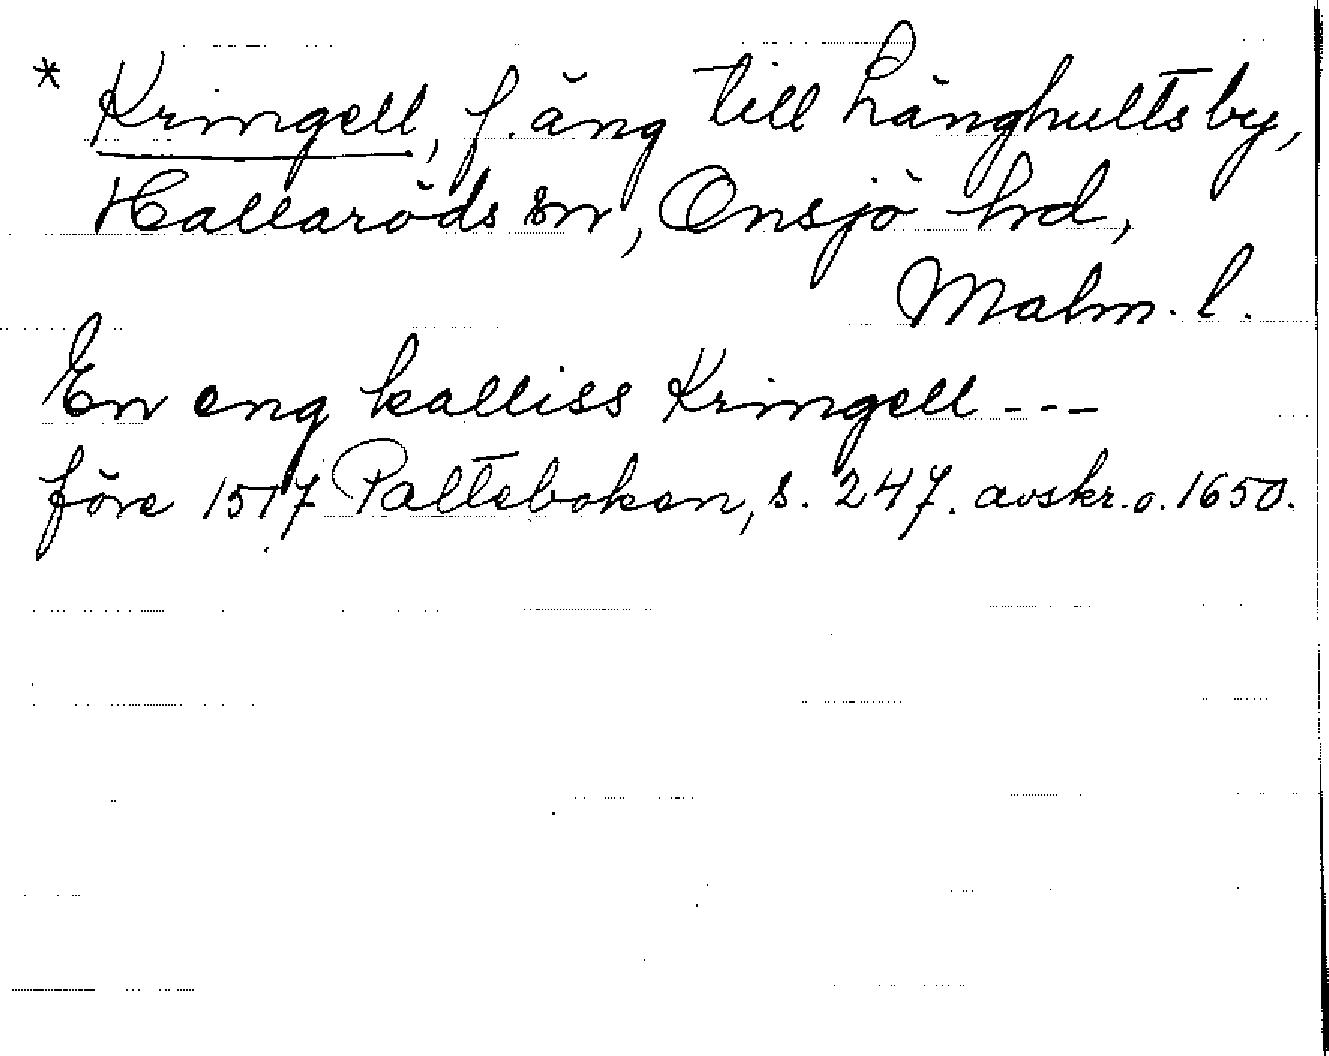 * Kringell, f. äng till Långhults by,
Hallaröds sn, Onsjö hrd,
Malm. l.
En eng kalliss Kringell ---
före 1517 Palteboken, s. 247. avskr. o. 1650.